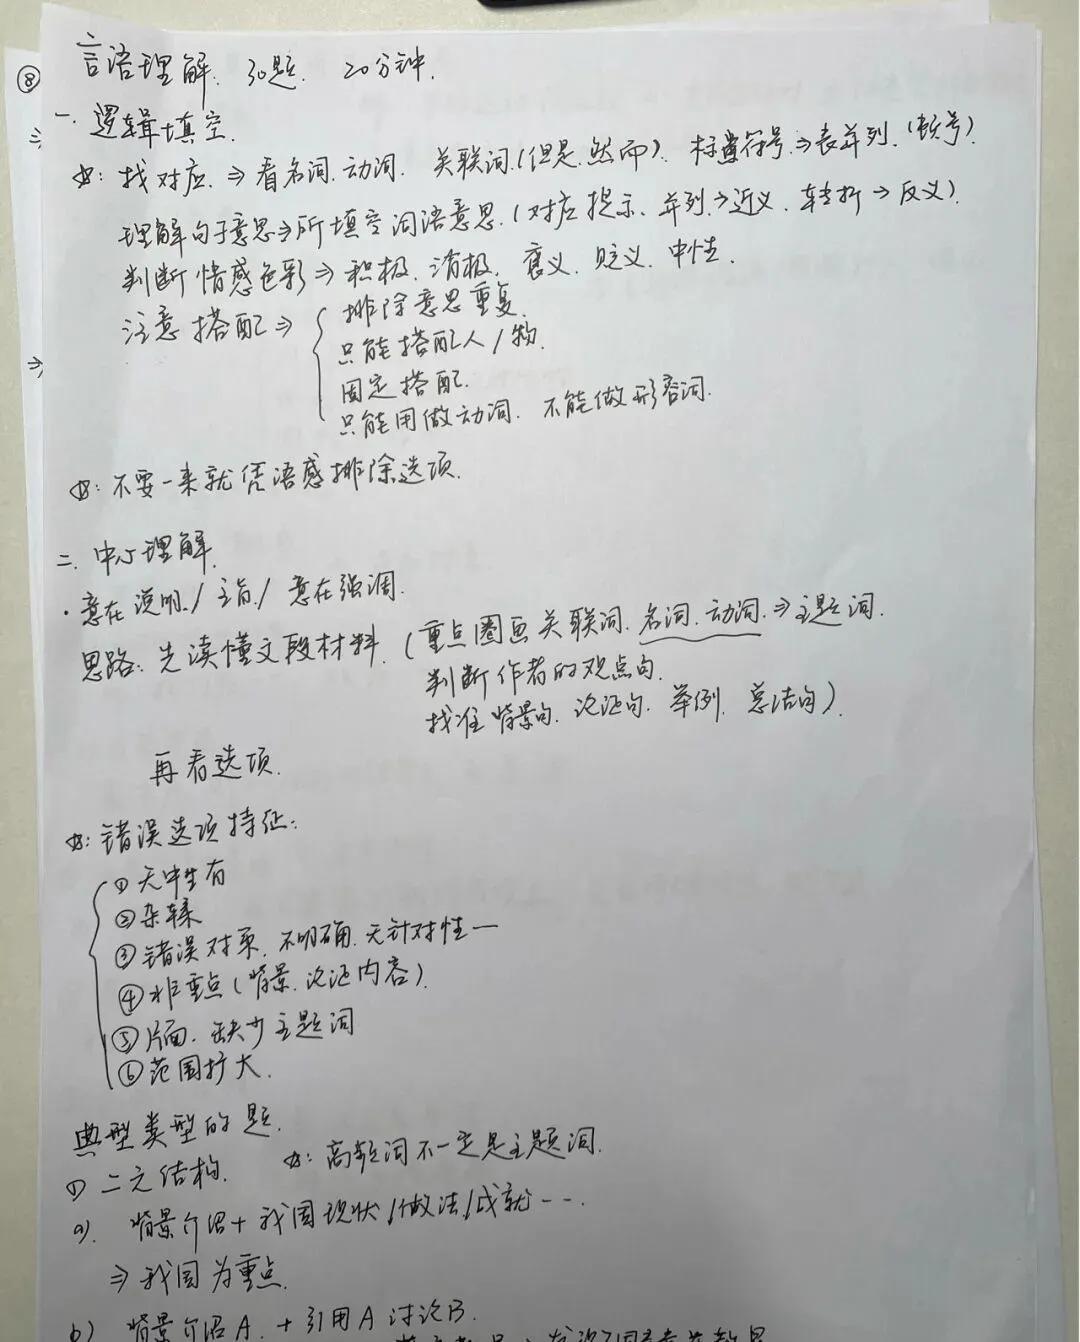 言语理解. 30题. 20分钟.
⑧
一. 逻辑填空.
找对应. ⇒ 看名词. 动词. 关联词.(但是. 然而). 标点符号. ⇒ 表并列.(顿号)
理解句子意思 ⇒ 所填空词语意思.(对应提示. 并列. → 近义. 转折 → 反义).
判断情感色彩 ⇒ 积极. 消极. 褒义. 贬义. 中性.
注意搭配 ⇒ { 排除意思重复.
只能搭配人/物.
固定搭配.
只能用做动词. 不能做形容词.
不要一来就凭语感排除选项.
二. 中心理解.
· 意在说明/主旨/意在强调.
思路: 先读懂文段材料.(重点圈画关联词. 名词. 动词. ⇒ 主题词.
判断作者的观点句.
找准背景句. 论证句. 举例. 总结句).
再看选项.
错误选项特征:
① 无中生有
② 杂糅
③ 错误对策. 不明确. 无针对性一
④ 非重点(背景. 论证内容).
⑤ 片面. 缺少主题词
⑥ 范围扩大.
典型类型的题.
① 二元结构. 高频词不一定是主题词.
a). 背景介绍 + 我国现状/做法/成就---.
⇒ 我国为重点.
b) 背景介绍A. + 引用A讨论B.